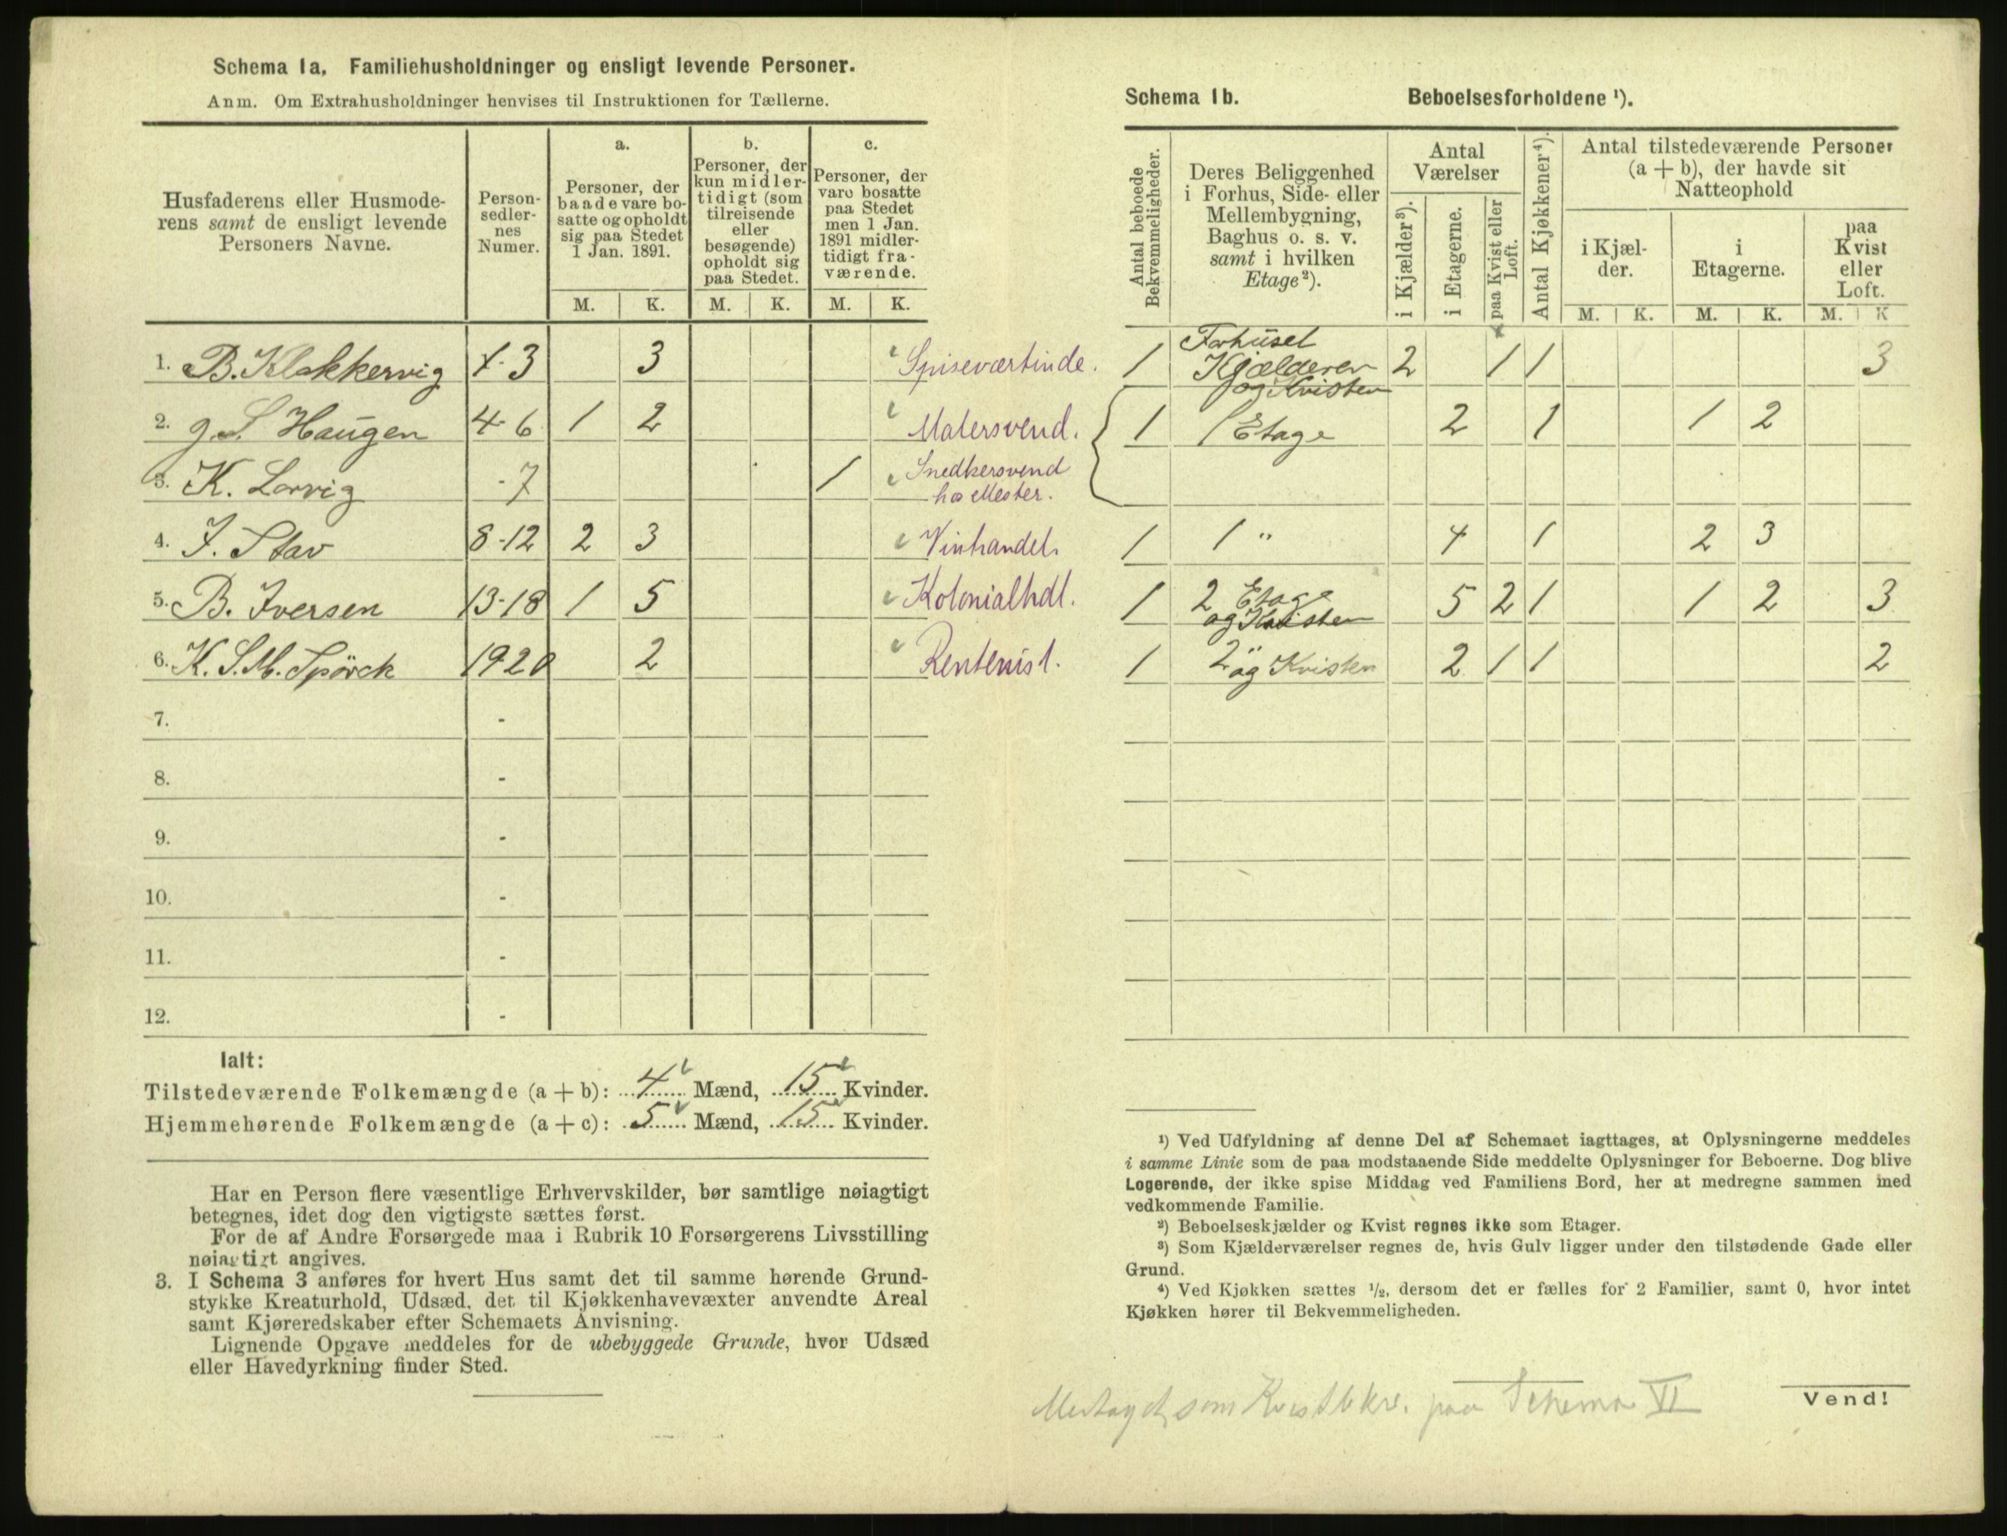 Schema 1a. Familiehusholdninger og ensligt levende Personer.
Anm. Om Extrahusholdninger henvises til Instruktionen for Tællerne.
Husfaderens eller Husmoderens samt de ensligt levende Personers Navne.
Personsedlernes Numer.
a.
Personer, der baade vare bosatte og opholdt sig paa Stedet 1 Jan. 1891.
b.
Personer, der kun midlertidigt (som tilreisende eller besøgende) opholdt sig paa Stedet.
c.
Personer, der vare bosatte paa Stedet men 1 Jan. 1891 midlertidigt fraværende.
M. K. M. K. M. K.
1. B. Klakkervig 1-3 3 Spiseværtinde.
2. J. S. Haugen 4-6 1 2 Malersvend.
3. K. Larvig -7 1 Snedkersvend
hos Mester.
4. J. Stav 8-12 2 3 Vinhandel.
5. B. Iversen 13-18 1 5 Kolonialhdl.
6. K. S. M. Spörck 19 20 2 Rentenist.
7. -
8. -
9. -
10. -
11. -
12. -
Ialt:
Tilstedeværende Folkemængde (a + b): 4 Mænd, 15 Kvinder.
Hjemmehørende Folkemængde (a + c): 5 Mænd, 15 Kvinder.
Har en Person flere væsentlige Erhvervskilder, bør samtlige nøiagtigt
betegnes, idet dog den vigtigste sættes først.
For de af Andre Forsørgede maa i Rubrik 10 Forsørgerens Livsstilling
nøiagtigt angives.
3. I Schema 3 anføres for hvert Hus samt det til samme hørende Grund-
stykke Kreaturhold, Udsæd, det til Kjøkkenhavevæxter anvendte Areal
samt Kjøreredskaber efter Schemaets Anvisning.
Lignende Opgave meddeles for de ubebyggede Grunde, hvor Udsæd
eller Havedyrkning finder Sted.
Schema 1b. Beboelsesforholdene ¹).
Antal beboede Bekvemmeligheder.
Deres Beliggenhed i Forhus, Side- eller Mellembygning, Baghus o. s. v. samt i hvilken Etage²).
Antal Værelser
i Kjælder³).
i Etagerne.
paa Kvist eller Loft.
Antal Kjøkkener⁴).
Antal tilstedeværende Personer (a + b), der havde sit Natteophold
i Kjælder.
i Etagerne.
paa Kvist eller Loft.
M. K. M. K. M. K
1 Forhuset Kjælderen og Kvisten 2 1 1 3
1 1 Etage 2 1 1 2
1 1 " 4 1 2 3
1 2 Etage og Kvisten 5 2 1 1 2 3
1 2 " og Kvisten 2 1 1 2
¹) Ved Udfyldning af denne Del af Schemaet iagttages, at Oplysningerne meddeles
i samme Linie som de paa modstaaende Side meddelte Oplysninger for Beboerne. Dog blive
Logerende, der ikke spise Middag ved Familiens Bord, her at medregne sammen med
vedkommende Familie.
²) Beboelseskjælder og Kvist regnes ikke som Etager.
³) Som Kjælderværelser regnes de, hvis Gulv ligger under den tilstødende Gade eller
Grund.
⁴) Ved Kjøkken sættes ½, dersom det er fælles for 2 Familier, samt 0, hvor intet
Kjøkken hører til Bekvemmeligheden.
som paa Schema VI
Vend!